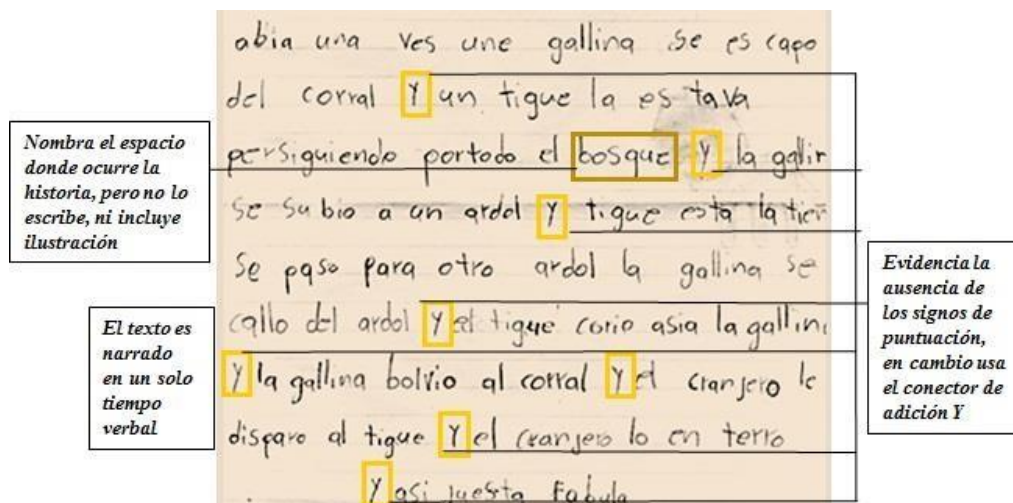 abia una ves une gallina se es capo
del corral Y un tigue la es tava
persiguiendo portodo el bosque Y la gallin
se su bio a un ardol Y tigue esta la tier
se paso para otro ardol la gallina se
callo del ardol Y el tigue corio asia la gallina
Y la gallina bolvio al corral Y el cranjero le
disparo al tigue Y el cranjero lo en terro
Y asi fabula
Nombra el espacio
donde ocurre la
historia, pero no lo
escribe, ni incluye
ilustración
El texto es
narrado
en un solo
tiempo
verbal
Evidencia la
ausencia de
los signos de
puntuación,
en cambio usa
el conector de
adición Y